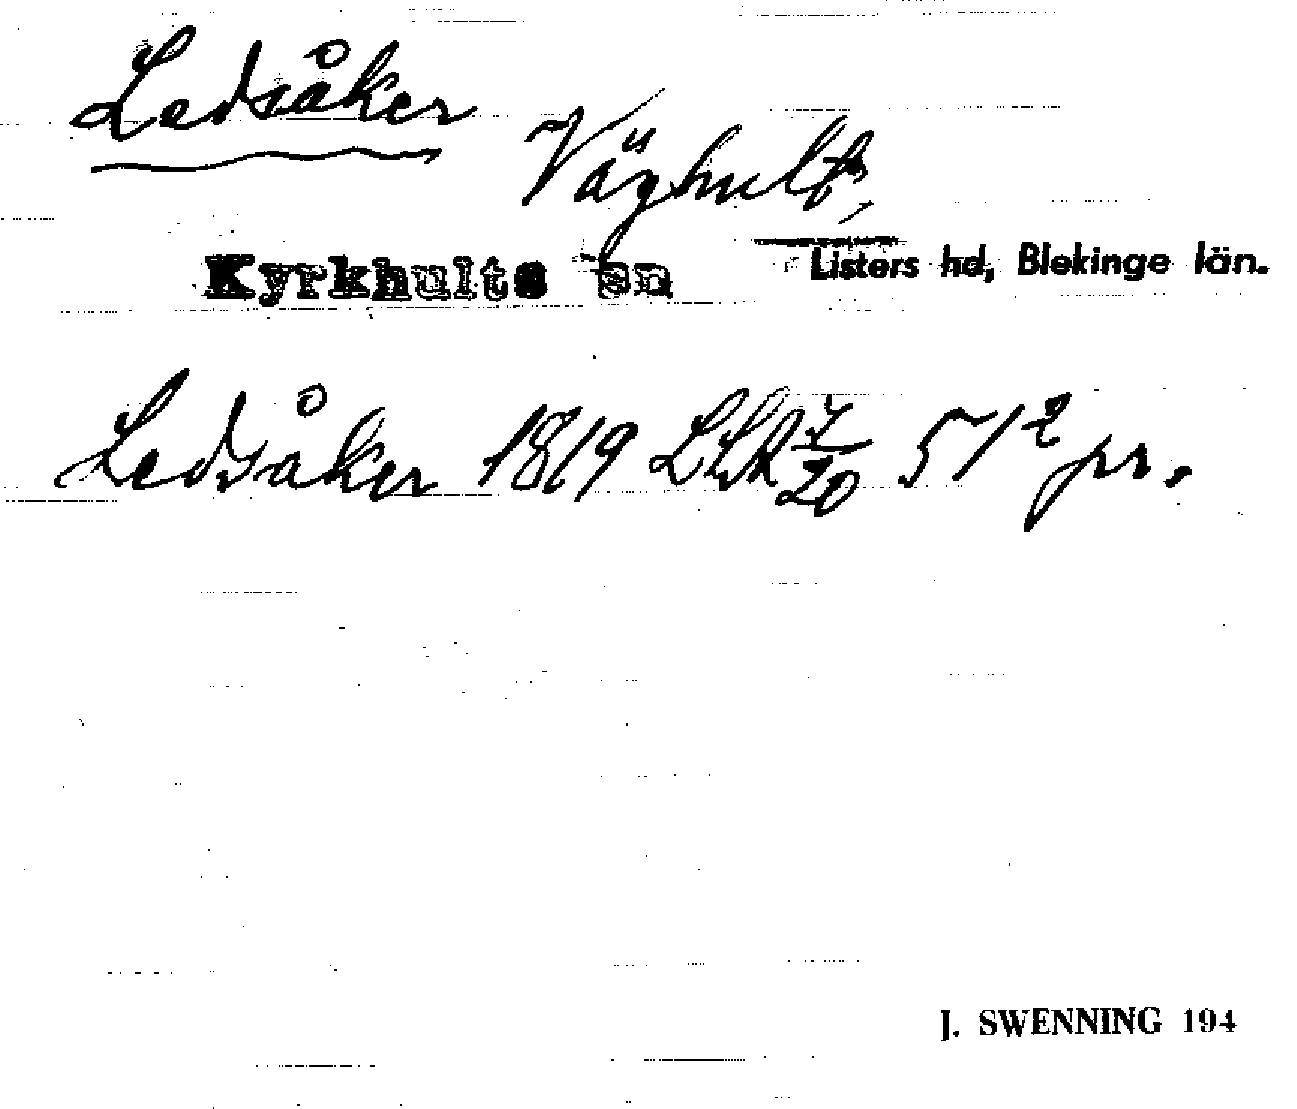 Ledsåker
Väghult,
Kyrkhults sn Listers hd, Blekinge län.
Ledsåker 1819 LSA 7/20 51² pr.
J. SWENNING 194